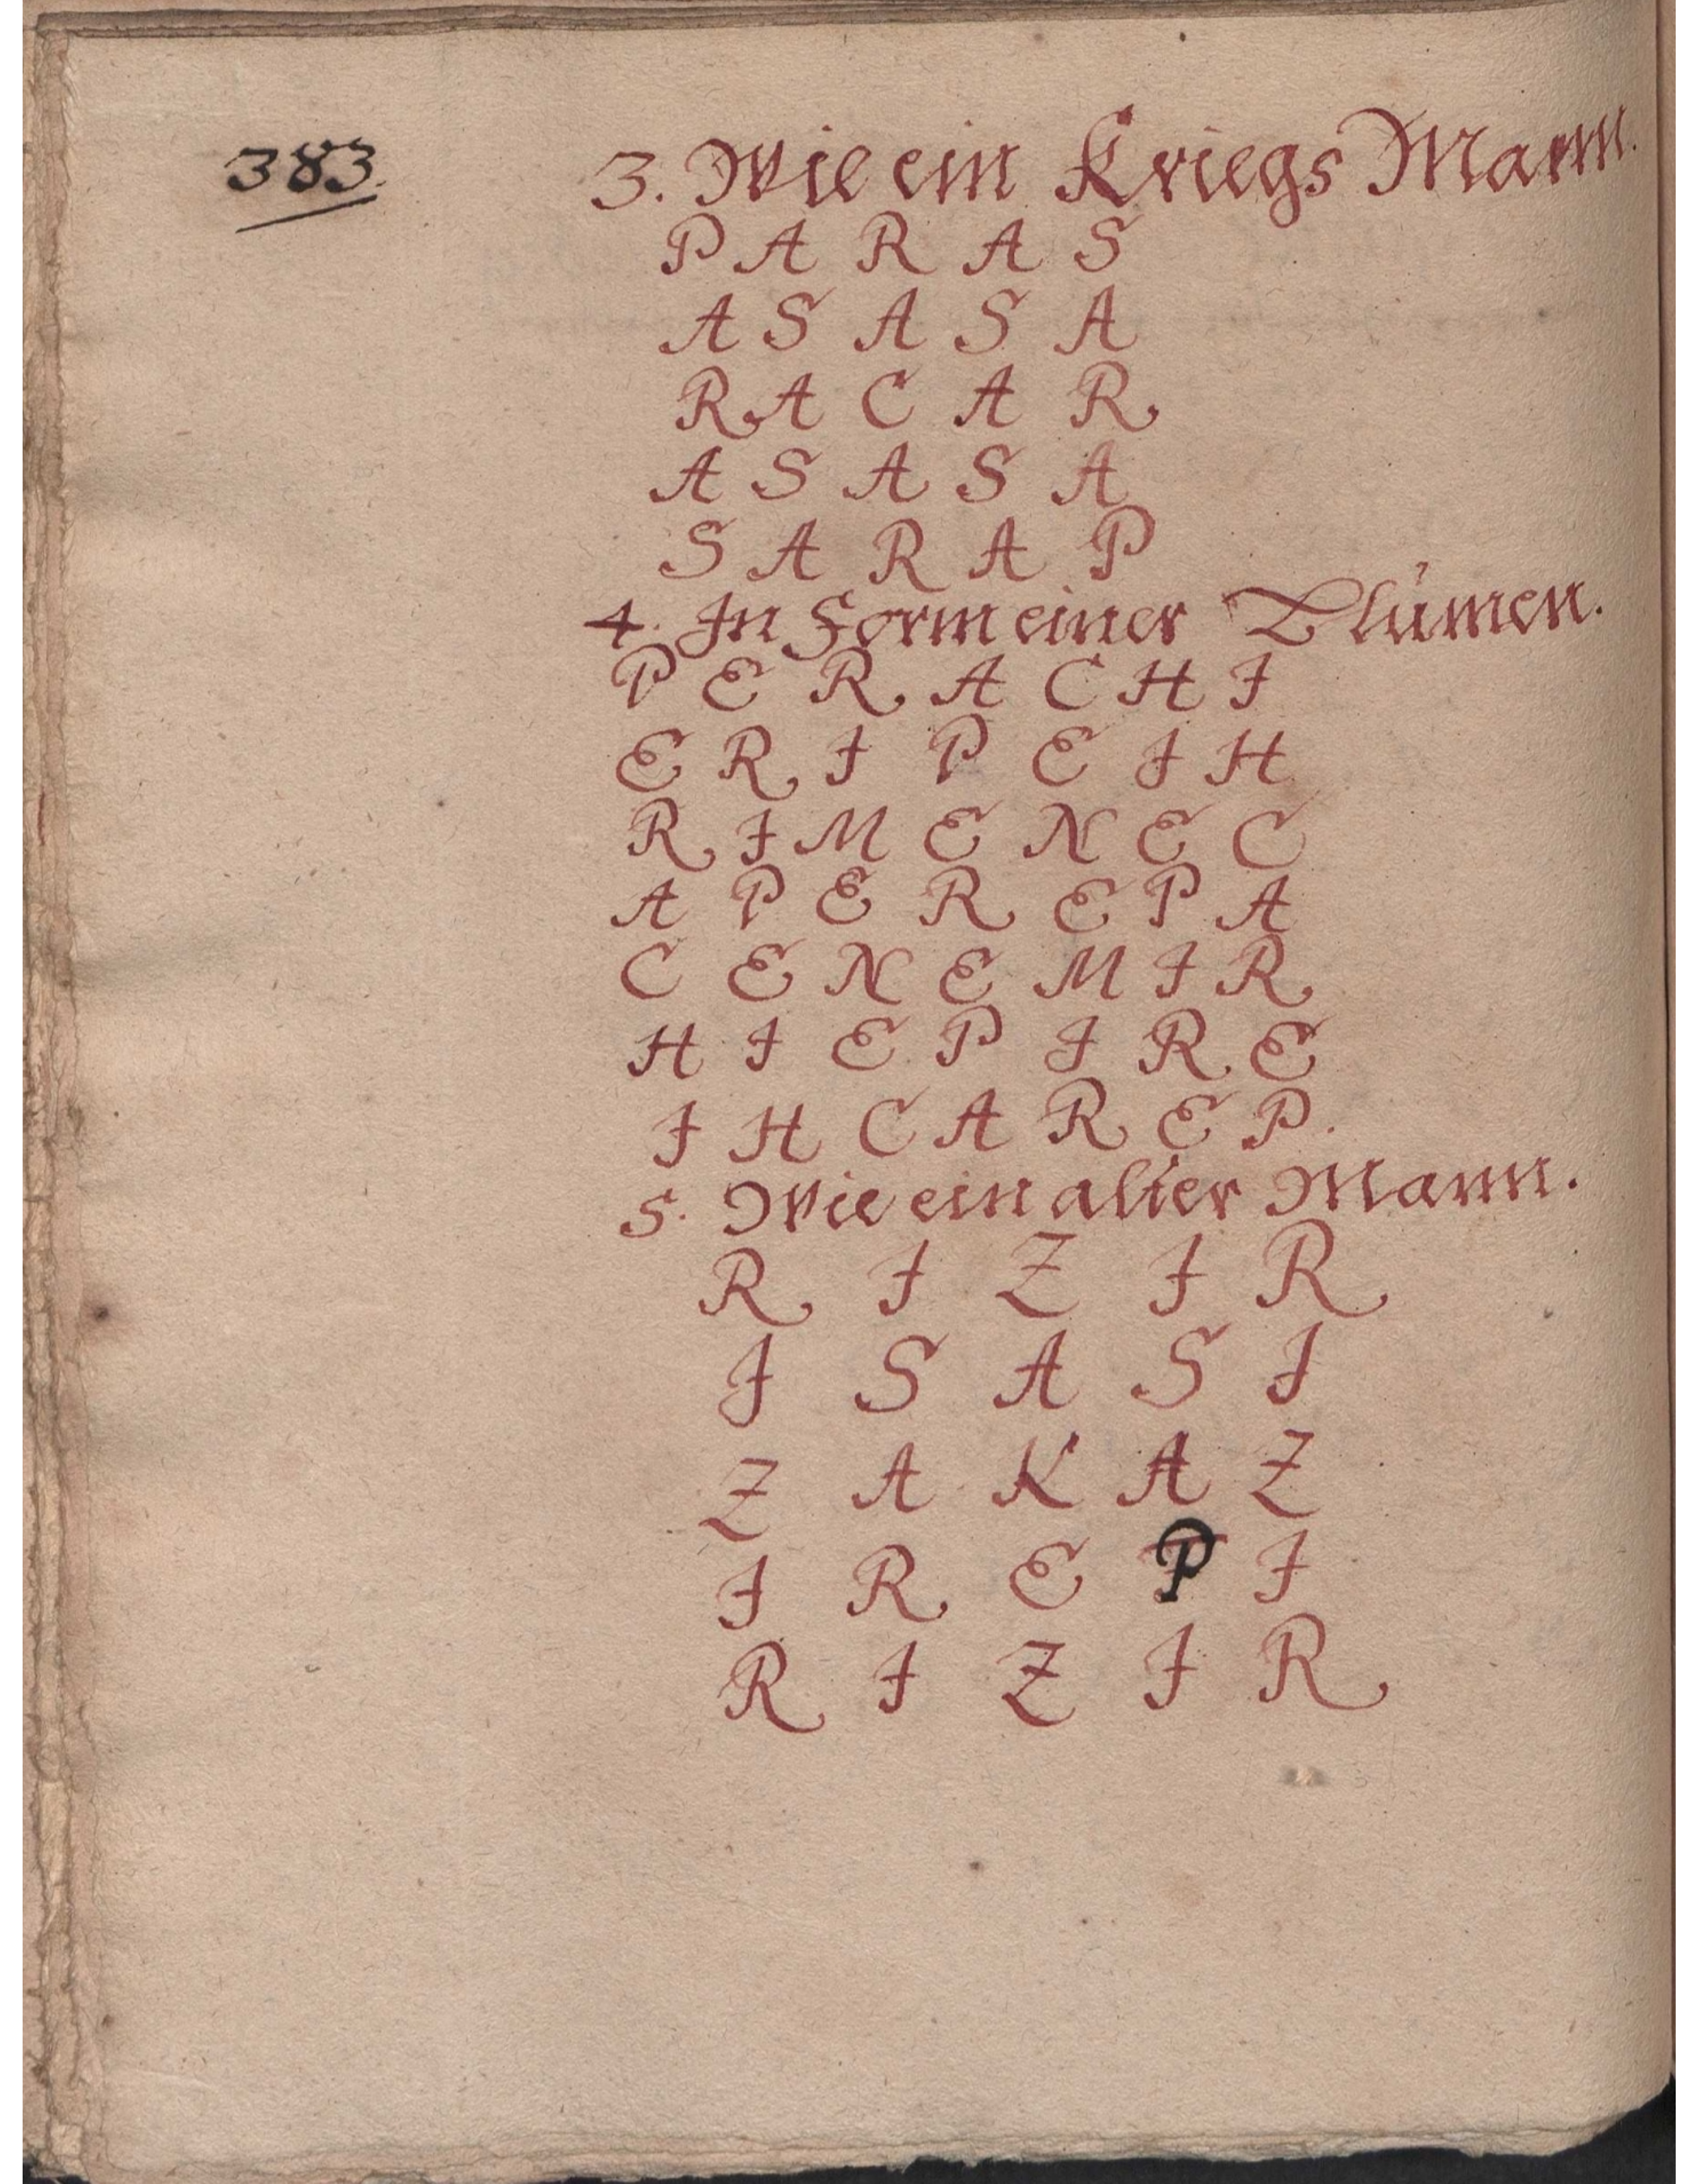 383.
3. Wie ein Kriegs Mann.
P A R A S
A S A S A
R A C A R
A S A S A
S A R A P
4. In Form einer Blúmen.
P E R A C H I
E R I P E I H
R I M E N E C
A P E R E P A
C E N E M I R
H I E P I R E
I H C A R E P.
5. Wie ein alter Mann.
R I Z I R
I S A S I
Z A K A Z
I R E P I
R I Z I R